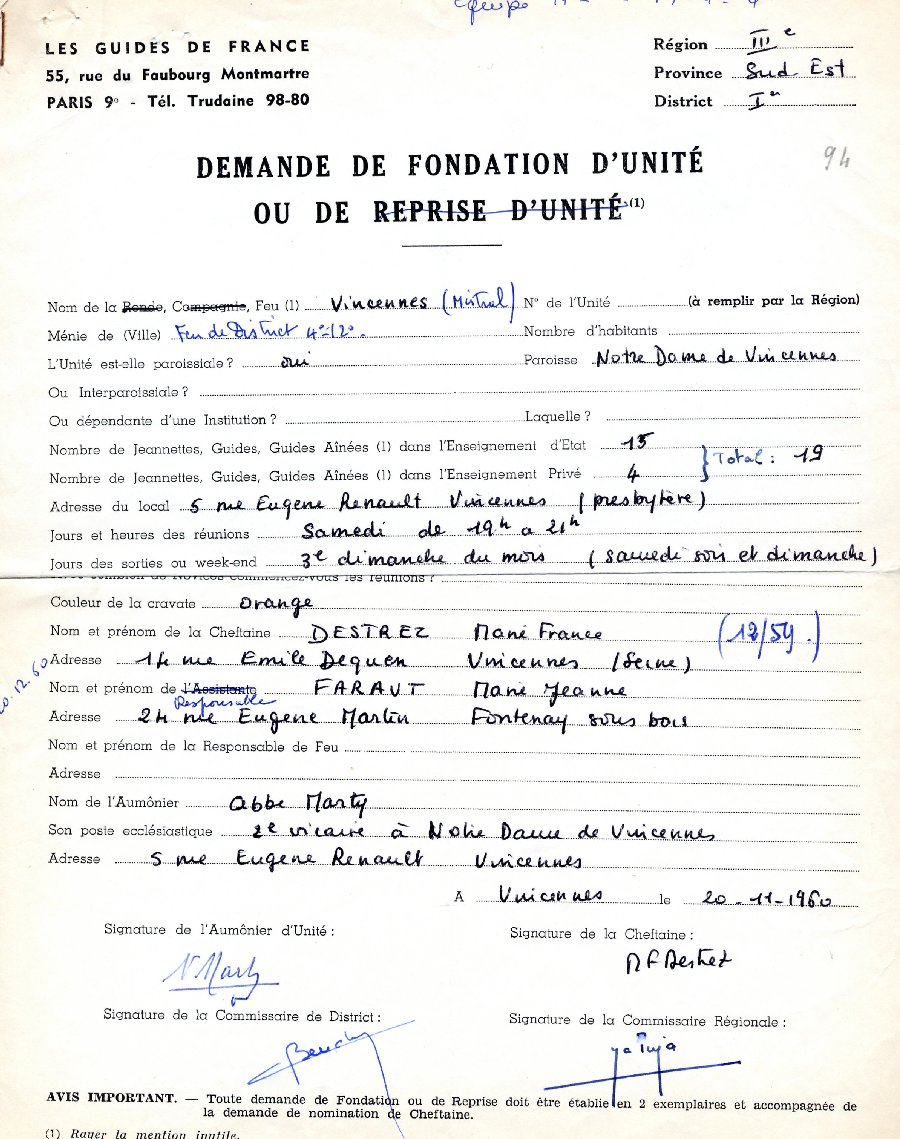 Equipe
LES GUIDES DE FRANCE
55, rue du Faubourg Montmartre
PARIS 9e - Tél. Trudaine 98-80
Région IIIe
Province Sud Est
District Ier
94
DEMANDE DE FONDATION D'UNITÉ
OU DE REPRISE D'UNITÉ (1)
Nom de la Ronde, Compagnie, Feu (1) Vincennes (Mistral) N° de l'Unité (à remplir par la Région)
Ménie de (Ville) Feu de District 4e-12e. Nombre d'habitants
L'Unité est-elle paroissiale ? oui Paroisse Notre Dame de Vincennes
Ou Interparoissiale ?
Ou dépendante d'une Institution ? Laquelle ?
Nombre de Jeannettes, Guides, Guides Aînées (1) dans l'Enseignement d'Etat 15
Nombre de Jeannettes, Guides, Guides Aînées (1) dans l'Enseignement Privé 4 } Total : 19
Adresse du local 5 rue Eugene Renault Vincennes (presbytère)
Jours et heures des réunions Samedi de 19h a 21h
Jours des sorties ou week-end 3e dimanche du mois (samedi soir et dimanche)
commencez-vous les réunions ?
Couleur de la cravate orange
Nom et prénom de la Cheftaine DESTREZ Marie France (12/59.)
Adresse 14 rue Emile Dequen Vincennes (Seine)
Nom et prénom de l'Assistante FARAUT Marie Jeanne
Responsable
Adresse 24 rue Eugene Martin Fontenay sous bois
Nom et prénom de la Responsable de Feu
Adresse
Nom de l'Aumônier abbe Marty
Son poste ecclésiastique 2e vicaire à Notre Dame de Vincennes
Adresse 5 rue Eugene Renault Vincennes
A Vincennes le 20-11-1960
Signature de l'Aumônier d'Unité :
Signature de la Cheftaine :
N Marty
MF Destrez
Signature de la Commissaire de District :
Signature de la Commissaire Régionale :
AVIS IMPORTANT. — Toute demande de Fondation ou de Reprise doit être établie en 2 exemplaires et accompagnée de
la demande de nomination de Cheftaine.
(1) Rayer la mention inutile.